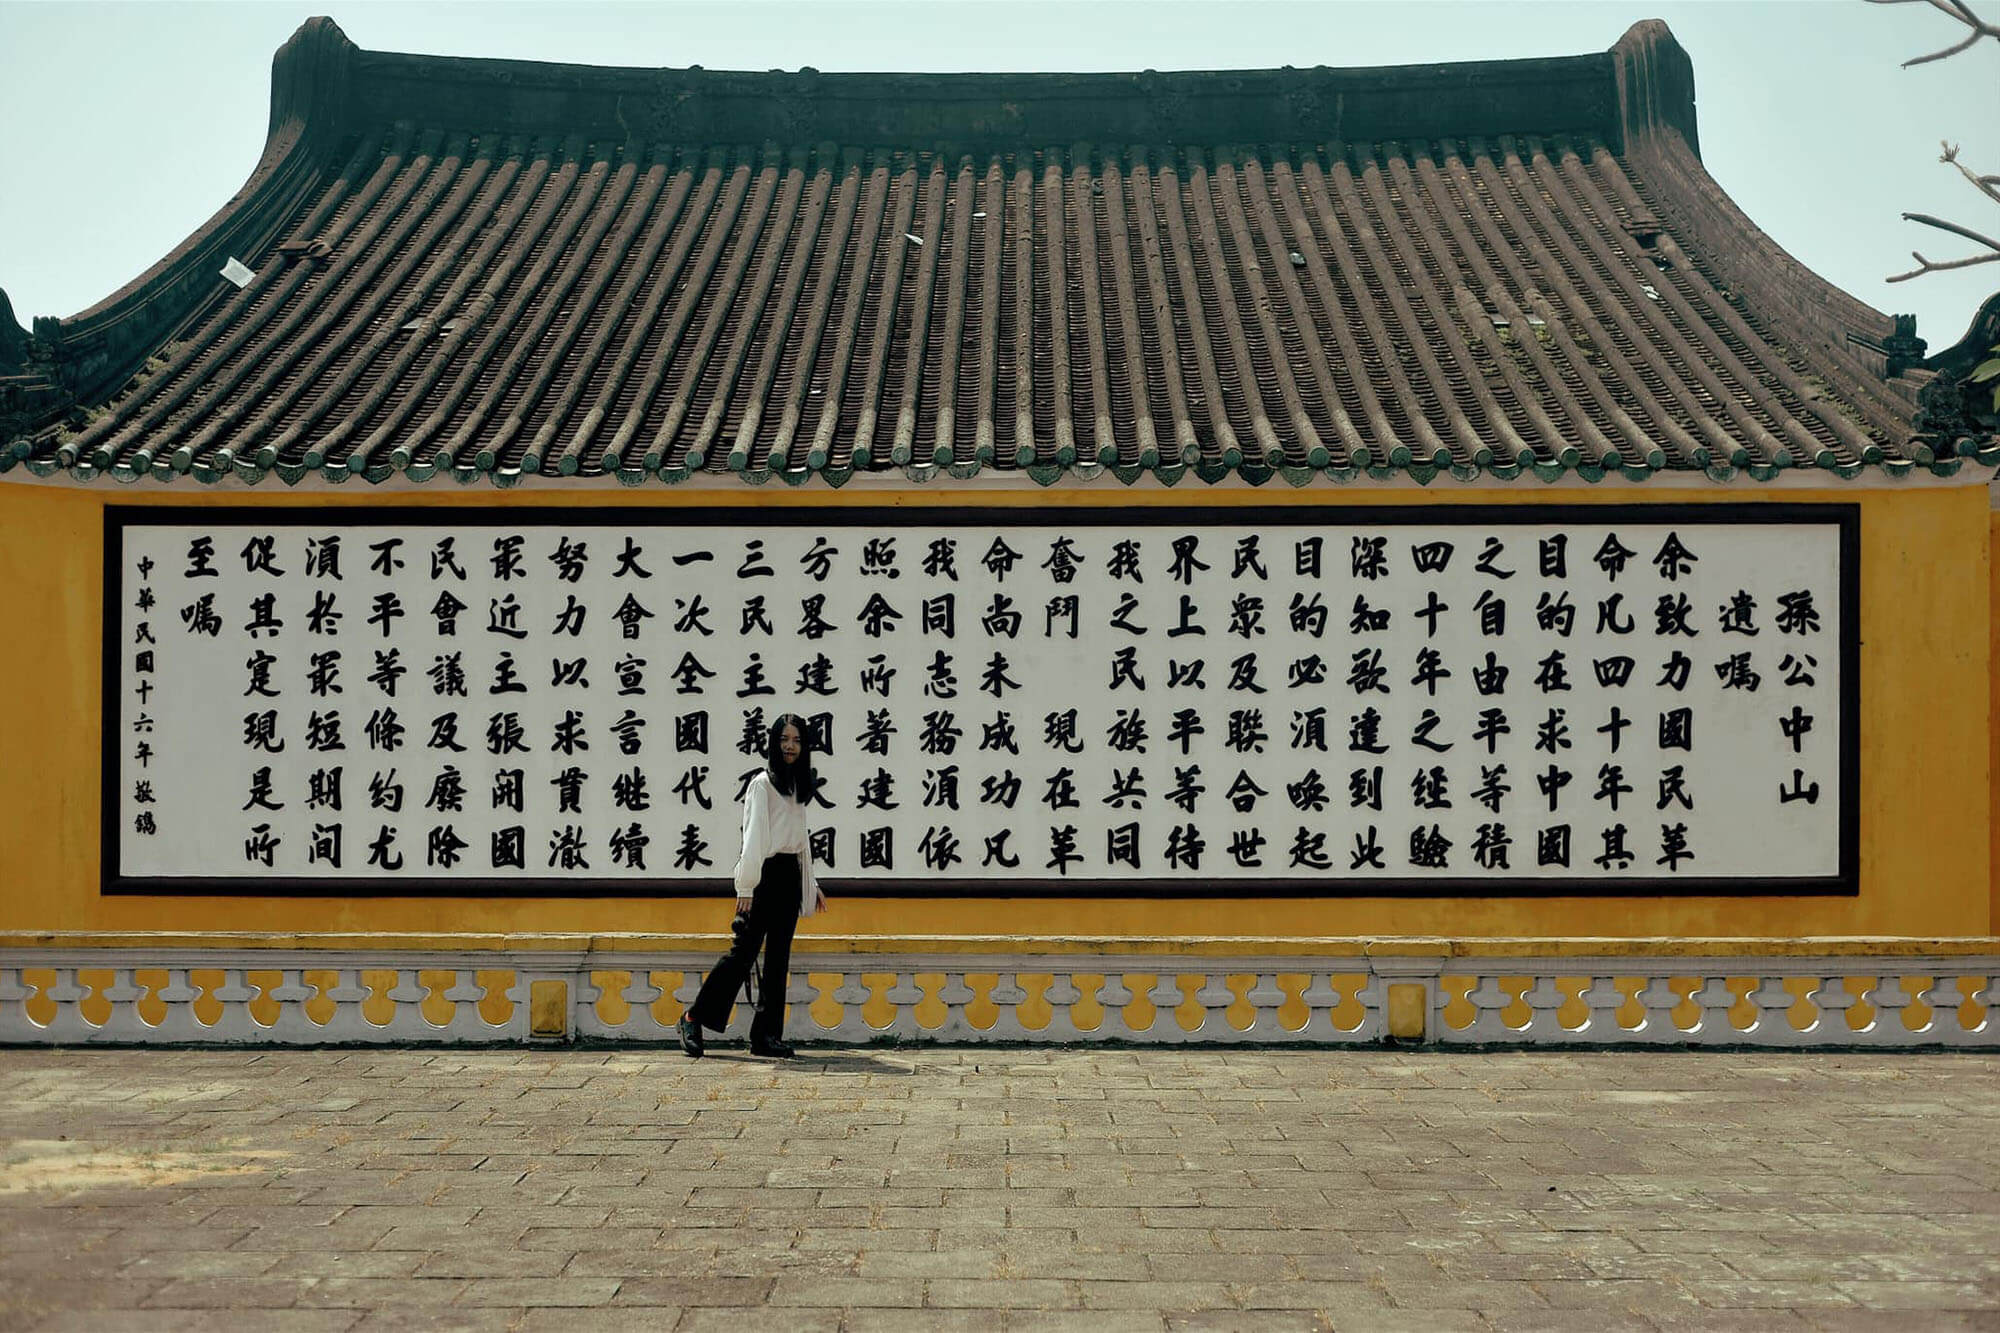 孫公中山
遺嘱
余致力國民革
命凡四十年其
目的在求中國
之自由平等積
四十年之經驗
深知欲達到此
目的必須喚起
民眾及聯合世
界上以平等待
我之民族共同
奮鬥 現在革
命尚未成功凡
我同志務須依
照余所著建國
方畧建國大綱
三民主義及
一次全國代表
大會宣言继續
努力以求貫澈
最近主張開國
民會議及廢除
不平等條約尤
須於最短期间
促其寔現是所
至嘱
中華民國十六年敬鐫